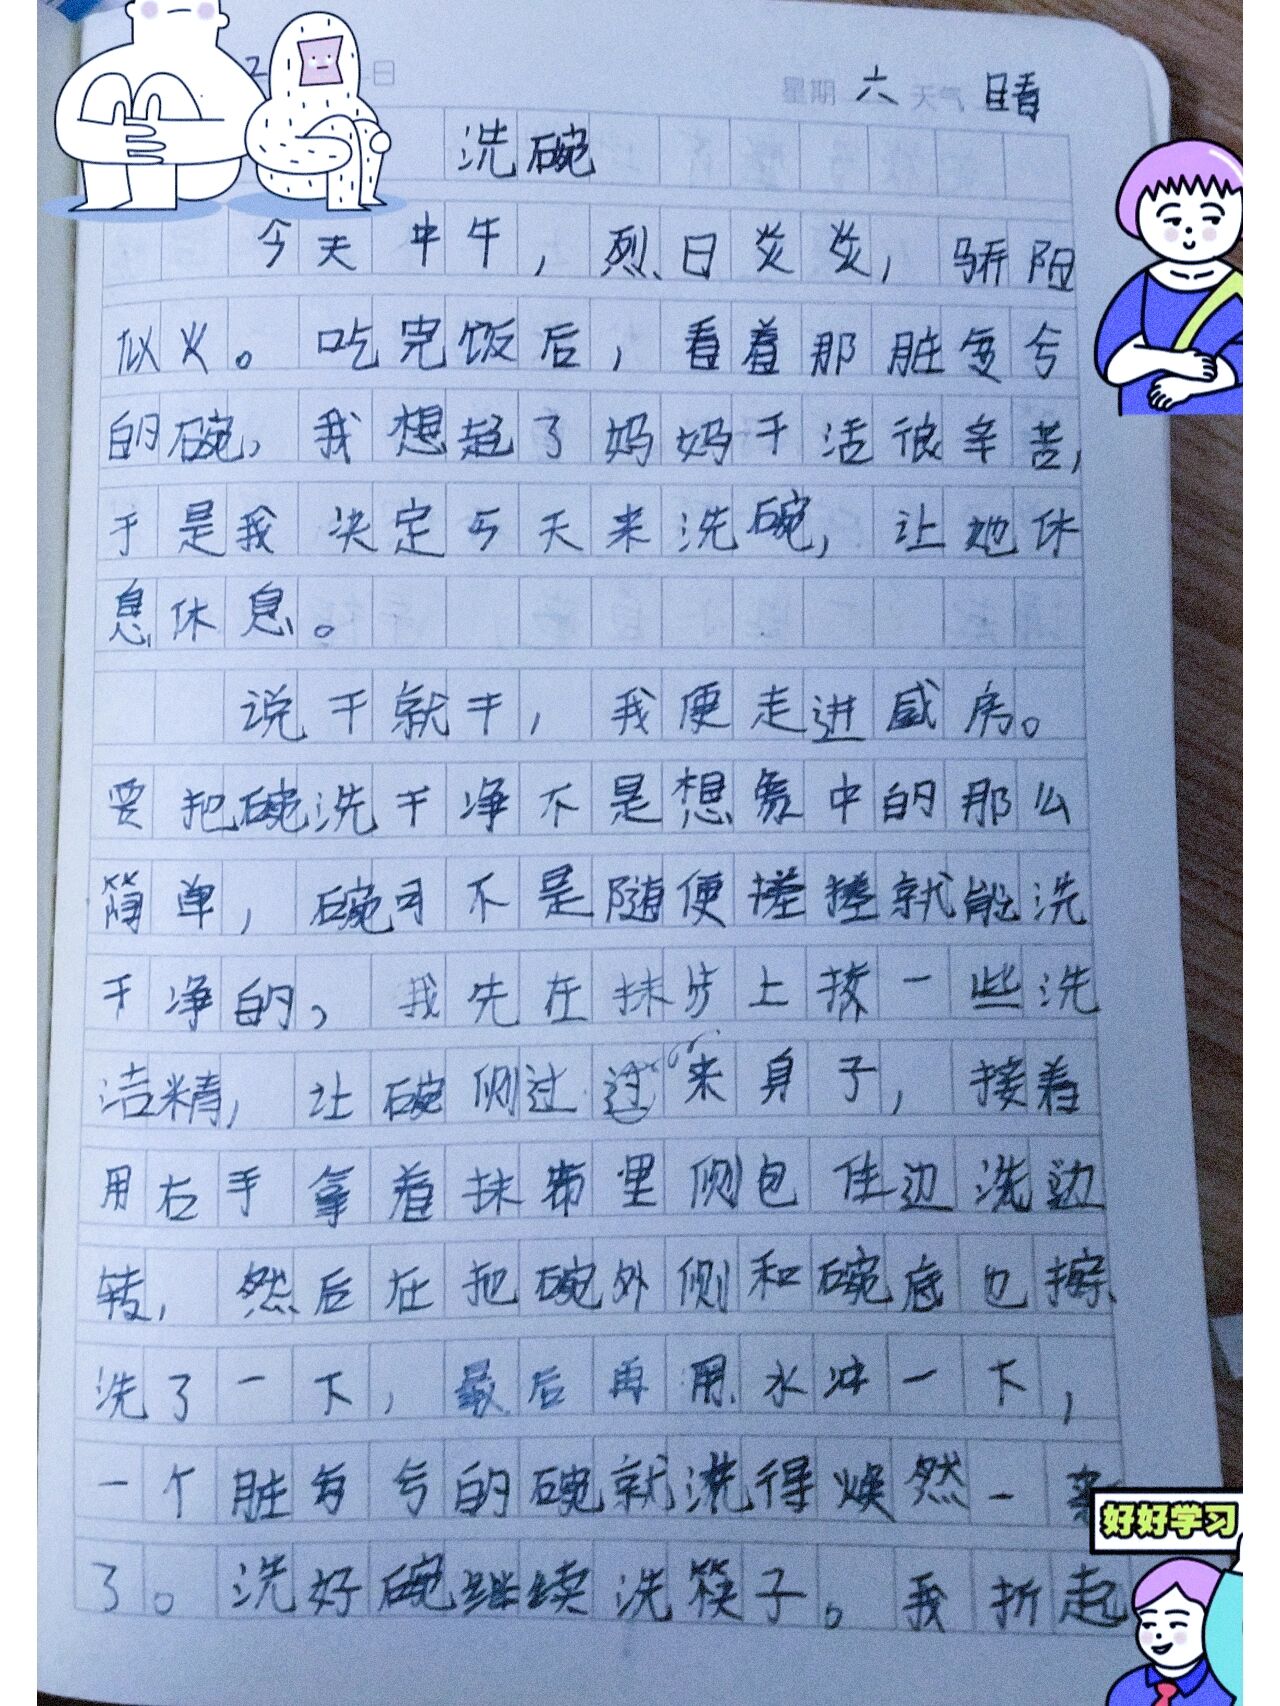 日 星期 六 天气 晴
洗碗
今天中午，烈日炎炎，骄阳
似火。吃完饭后，看着那脏兮兮
的碗，我想起了妈妈干活很辛苦，
于是我决定今天来洗碗，让她休
息休息。
说干就干，我便走进厨房。
要把碗洗干净不是想象中的那么
简单，碗可不是随便搓搓就能洗
干净的，我先在抹步上挤一些洗
洁精，让碗侧过来身子，接着
用右手拿着抹布里侧包住边洗边
转，然后在把碗外侧和碗底也擦
洗了一下，最后再用水冲一下，
一个脏兮兮的碗就洗得焕然一新
了。洗好碗继续洗筷子。我折起
好好学习